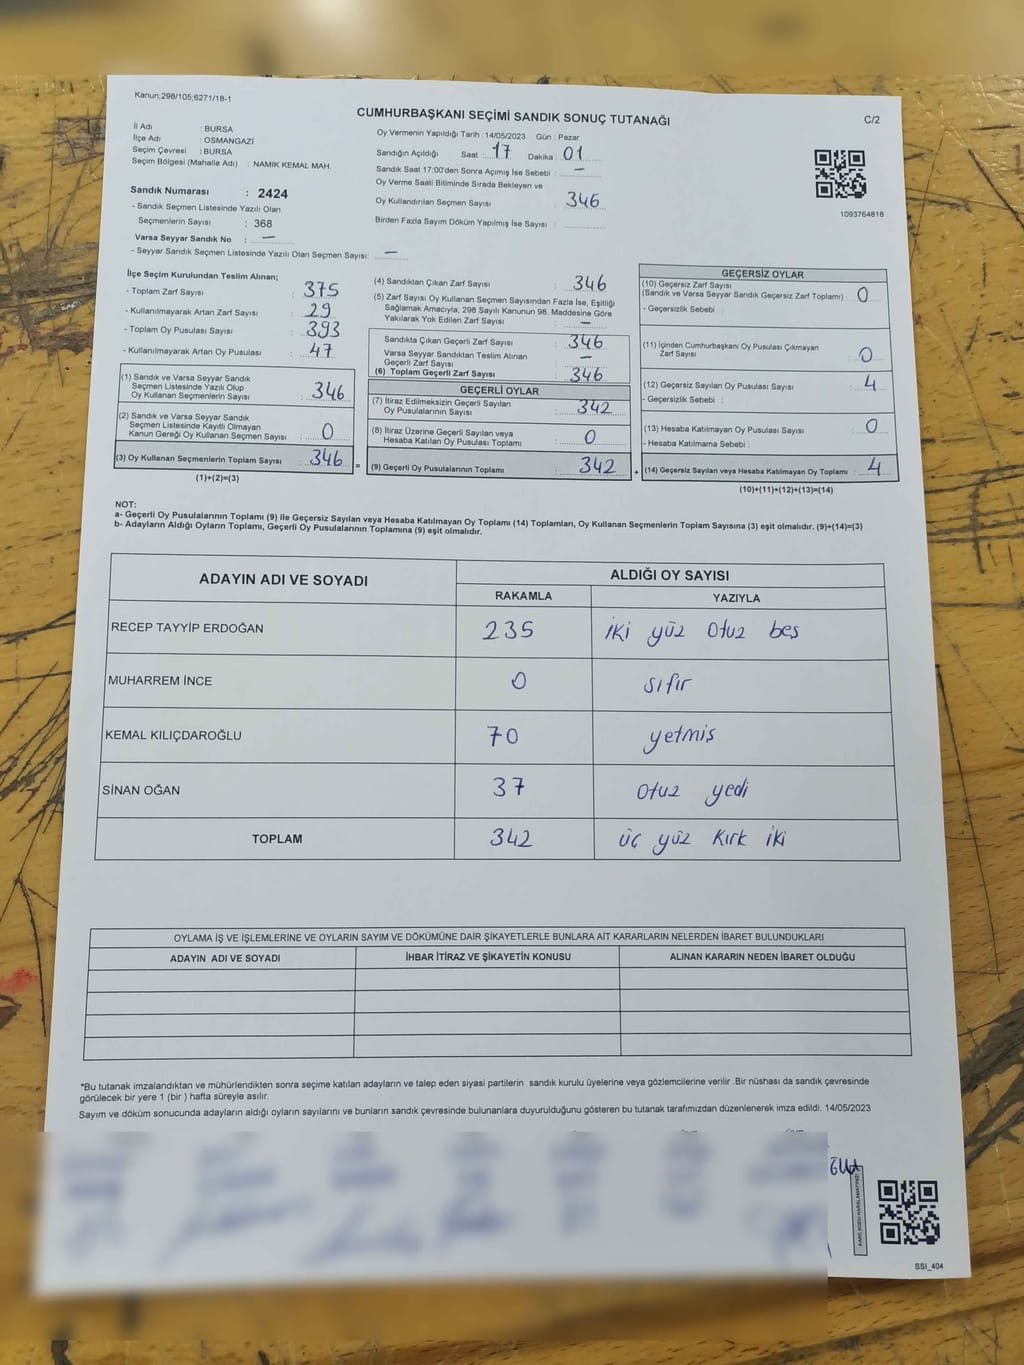 Kanun;298/105;6271/18-1
CUMHURBAŞKANI SEÇİMİ SANDIK SONUÇ TUTANAĞI
C/2
İl Adı : BURSA
İlçe Adı : OSMANGAZİ
Seçim Çevresi : BURSA
Seçim Bölgesi (Mahalle Adı) : NAMIK KEMAL MAH.
Sandık Numarası : 2424
- Sandık Seçmen Listesinde Yazılı Olan
Seçmenlerin Sayısı : 368
Varsa Seyyar Sandık No : —
- Seyyar Sandık Seçmen Listesinde Yazılı Olan Seçmen Sayısı: —
Oy Vermenin Yapıldığı Tarih : 14/05/2023 Gün : Pazar
Sandığın Açıldığı Saat : 17 Dakika : 01
Sandık Saat 17:00'den Sonra Açımış İse Sebebi : —
Oy Verme Saati Bitiminde Sırada Bekleyen ve
Oy Kullandırılan Seçmen Sayısı : 346
Birden Fazla Sayım Döküm Yapılmış İse Sayısı :
1093764818
İlçe Seçim Kurulundan Teslim Alınan;
- Toplam Zarf Sayısı : 375
- Kullanılmayarak Artan Zarf Sayısı : 29
- Toplam Oy Pusulası Sayısı : 393
- Kullanılmayarak Artan Oy Pusulası : 47
(1) Sandık ve Varsa Seyyar Sandık
Seçmen Listesinde Yazılı Olup
Oy Kullanan Seçmenlerin Sayısı : 346
(2) Sandık ve Varsa Seyyar Sandık
Seçmen Listesinde Kayıtlı Olmayan
Kanun Gereği Oy Kullanan Seçmen Sayısı : 0
(3) Oy Kullanan Seçmenlerin Toplam Sayısı : 346 =
(1)+(2)=(3)
(4) Sandıktan Çıkan Zarf Sayısı : 346
(5) Zarf Sayısı Oy Kullanan Seçmen Sayısından Fazla İse, Eşitliği
Sağlamak Amacıyla; 298 Sayılı Kanunun 98. Maddesine Göre
Yakılarak Yok Edilen Zarf Sayısı : —
Sandıkta Çıkan Geçerli Zarf Sayısı : 346
Varsa Seyyar Sandıktan Teslim Alınan
Geçerli Zarf Sayısı : —
(6) Toplam Geçerli Zarf Sayısı : 346
GEÇERLİ OYLAR
(7) İtiraz Edilmeksizin Geçerli Sayılan
Oy Pusulalarının Sayısı : 342
(8) İtiraz Üzerine Geçerli Sayılan veya
Hesaba Katılan Oy Pusulası Toplamı : 0
(9) Geçerli Oy Pusulalarının Toplamı : 342 +
GEÇERSİZ OYLAR
(10) Geçersiz Zarf Sayısı
(Sandık ve Varsa Seyyar Sandık Geçersiz Zarf Toplamı) : 0
- Geçersizlik Sebebi :
(11) İçinden Cumhurbaşkanı Oy Pusulası Çıkmayan
Zarf Sayısı : 0
(12) Geçersiz Sayılan Oy Pusulası Sayısı : 4
- Geçersizlik Sebebi :
(13) Hesaba Katılmayan Oy Pusulası Sayısı : 0
- Hesaba Katılmama Sebebi :
(14) Geçersiz Sayılan veya Hesaba Katılmayan Oy Toplamı : 4
(10)+(11)+(12)+(13)=(14)
NOT:
a- Geçerli Oy Pusulalarının Toplamı (9) ile Geçersiz Sayılan veya Hesaba Katılmayan Oy Toplamı (14) Toplamları, Oy Kullanan Seçmenlerin Toplam Sayısına (3) eşit olmalıdır. (9)+(14)=(3)
b- Adayların Aldığı Oyların Toplamı, Geçerli Oy Pusulalarının Toplamına (9) eşit olmalıdır.
ADAYIN ADI VE SOYADI ALDIĞI OY SAYISI
RAKAMLA YAZIYLA
RECEP TAYYİP ERDOĞAN 235 iki yüz otuz beş
MUHARREM İNCE 0 sıfır
KEMAL KILIÇDAROĞLU 70 yetmiş
SİNAN OĞAN 37 otuz yedi
TOPLAM 342 üç yüz kırk iki
OYLAMA İŞ VE İŞLEMLERİNE VE OYLARIN SAYIM VE DÖKÜMÜNE DAİR ŞİKAYETLERLE BUNLARA AİT KARARLARIN NELERDEN İBARET BULUNDUKLARI
ADAYIN ADI VE SOYADI İHBAR İTİRAZ VE ŞİKAYETİN KONUSU ALINAN KARARIN NEDEN İBARET OLDUĞU
*Bu tutanak imzalandıktan ve mühürlendikten sonra seçime katılan adayların ve talep eden siyasi partilerin sandık kurulu üyelerine veya gözlemcilerine verilir .Bir nüshası da sandık çevresinde
görülecek bir yere 1 (bir ) hafta süreyle asılır.
Sayım ve döküm sonucunda adayların aldığı oyların sayılarını ve bunların sandık çevresinde bulunanlara duyurulduğunu gösteren bu tutanak tarafımızdan düzenlenerek imza edildi. 14/05/2023
KARE KODU KARALAMAYINIZ!
SSI_404